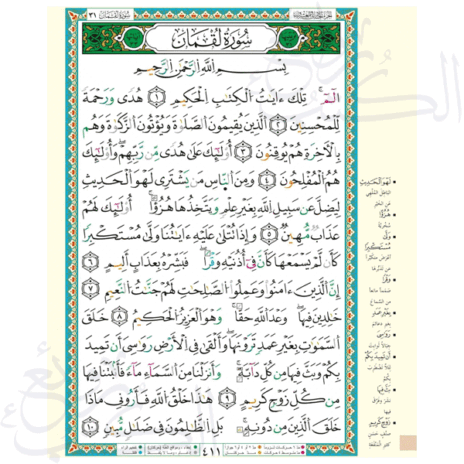 سُورَةُ لُقْمَان ٣١
سُورَةُ لُقْمَان
بِسْمِ اللَّهِ الرَّحْمَٰنِ الرَّحِيمِ
الٓمٓ ١ تِلْكَ ءَايَٰتُ الْكِتَٰبِ الْحَكِيمِ ٢ هُدًى وَرَحْمَةً
لِّلْمُحْسِنِينَ ٣ الَّذِينَ يُقِيمُونَ الصَّلَوٰةَ وَيُؤْتُونَ الزَّكَوٰةَ وَهُم
بِالْءَاخِرَةِ هُمْ يُوقِنُونَ ٤ أُو۟لَٰٓئِكَ عَلَىٰ هُدًى مِّن رَّبِّهِمْ وَأُو۟لَٰٓئِكَ
هُمُ الْمُفْلِحُونَ ٥ وَمِنَ النَّاسِ مَن يَشْتَرِى لَهْوَ الْحَدِيثِ
لِيُضِلَّ عَن سَبِيلِ اللَّهِ بِغَيْرِ عِلْمٍ وَيَتَّخِذَهَا هُزُوًا أُو۟لَٰٓئِكَ لَهُمْ
عَذَابٌ مُّهِينٌ ٦ وَإِذَا تُتْلَىٰ عَلَيْهِ ءَايَٰتُنَا وَلَّىٰ مُسْتَكْبِرًا
كَأَن لَّمْ يَسْمَعْهَا كَأَنَّ فِىٓ أُذُنَيْهِ وَقْرًا فَبَشِّرْهُ بِعَذَابٍ أَلِيمٍ ٧
إِنَّ الَّذِينَ ءَامَنُوا۟ وَعَمِلُوا۟ الصَّٰلِحَٰتِ لَهُمْ جَنَّٰتُ النَّعِيمِ ٨
خَٰلِدِينَ فِيهَا وَعْدَ اللَّهِ حَقًّا وَهُوَ الْعَزِيزُ الْحَكِيمُ ٩ خَلَقَ
السَّمَٰوَٰتِ بِغَيْرِ عَمَدٍ تَرَوْنَهَا وَأَلْقَىٰ فِى الْأَرْضِ رَوَٰسِىَ أَن تَمِيدَ
بِكُمْ وَبَثَّ فِيهَا مِن كُلِّ دَآبَّةٍ وَأَنزَلْنَا مِنَ السَّمَآءِ مَآءً فَأَنۢبَتْنَا فِيهَا
مِن كُلِّ زَوْجٍ كَرِيمٍ ١٠ هَٰذَا خَلْقُ اللَّهِ فَأَرُونِى مَاذَا
خَلَقَ الَّذِينَ مِن دُونِهِ بَلِ الظَّٰلِمُونَ فِى ضَلَٰلٍ مُّبِينٍ ١١
٤١١
لَهْوَ الْحَدِيثِ
هُزُوًا
وَلَّىٰ مُسْتَكْبِرًا
وَقْرًا
بِغَيْرِ عَمَدٍ
رَوَٰسِىَ
أَن تَمِيدَ بِكُمْ
بَثَّ فِيهَا
زَوْجٍ كَرِيمٍ